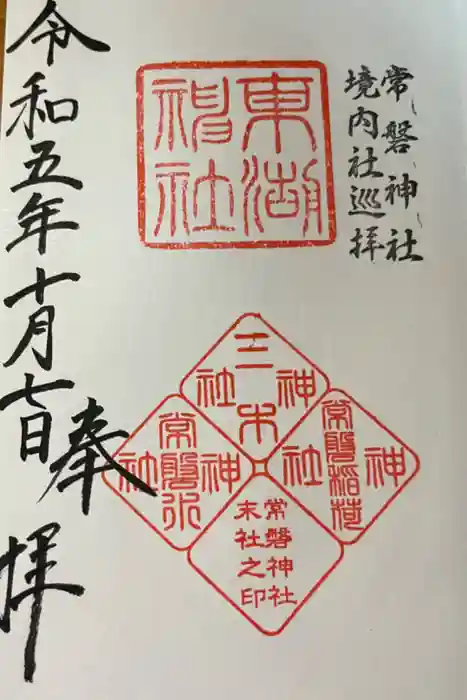 常磐神社
境内社巡拝
東湖
神社
三木
神社
常磐稲荷
神社
常磐
神社
常磐神社
末社之印
奉拝
令和五年十月七日